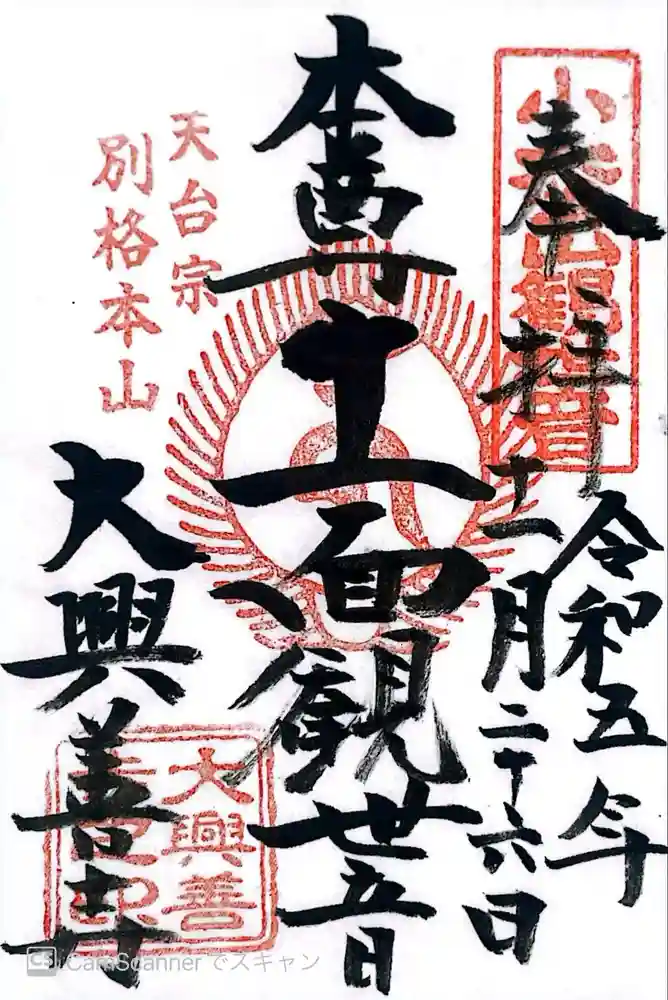 奉拝
令和五年
十一月二十六日
本尊十一面観世音
天台宗
別格本山
大興善寺
大興善
CS CamScanner でスキャン